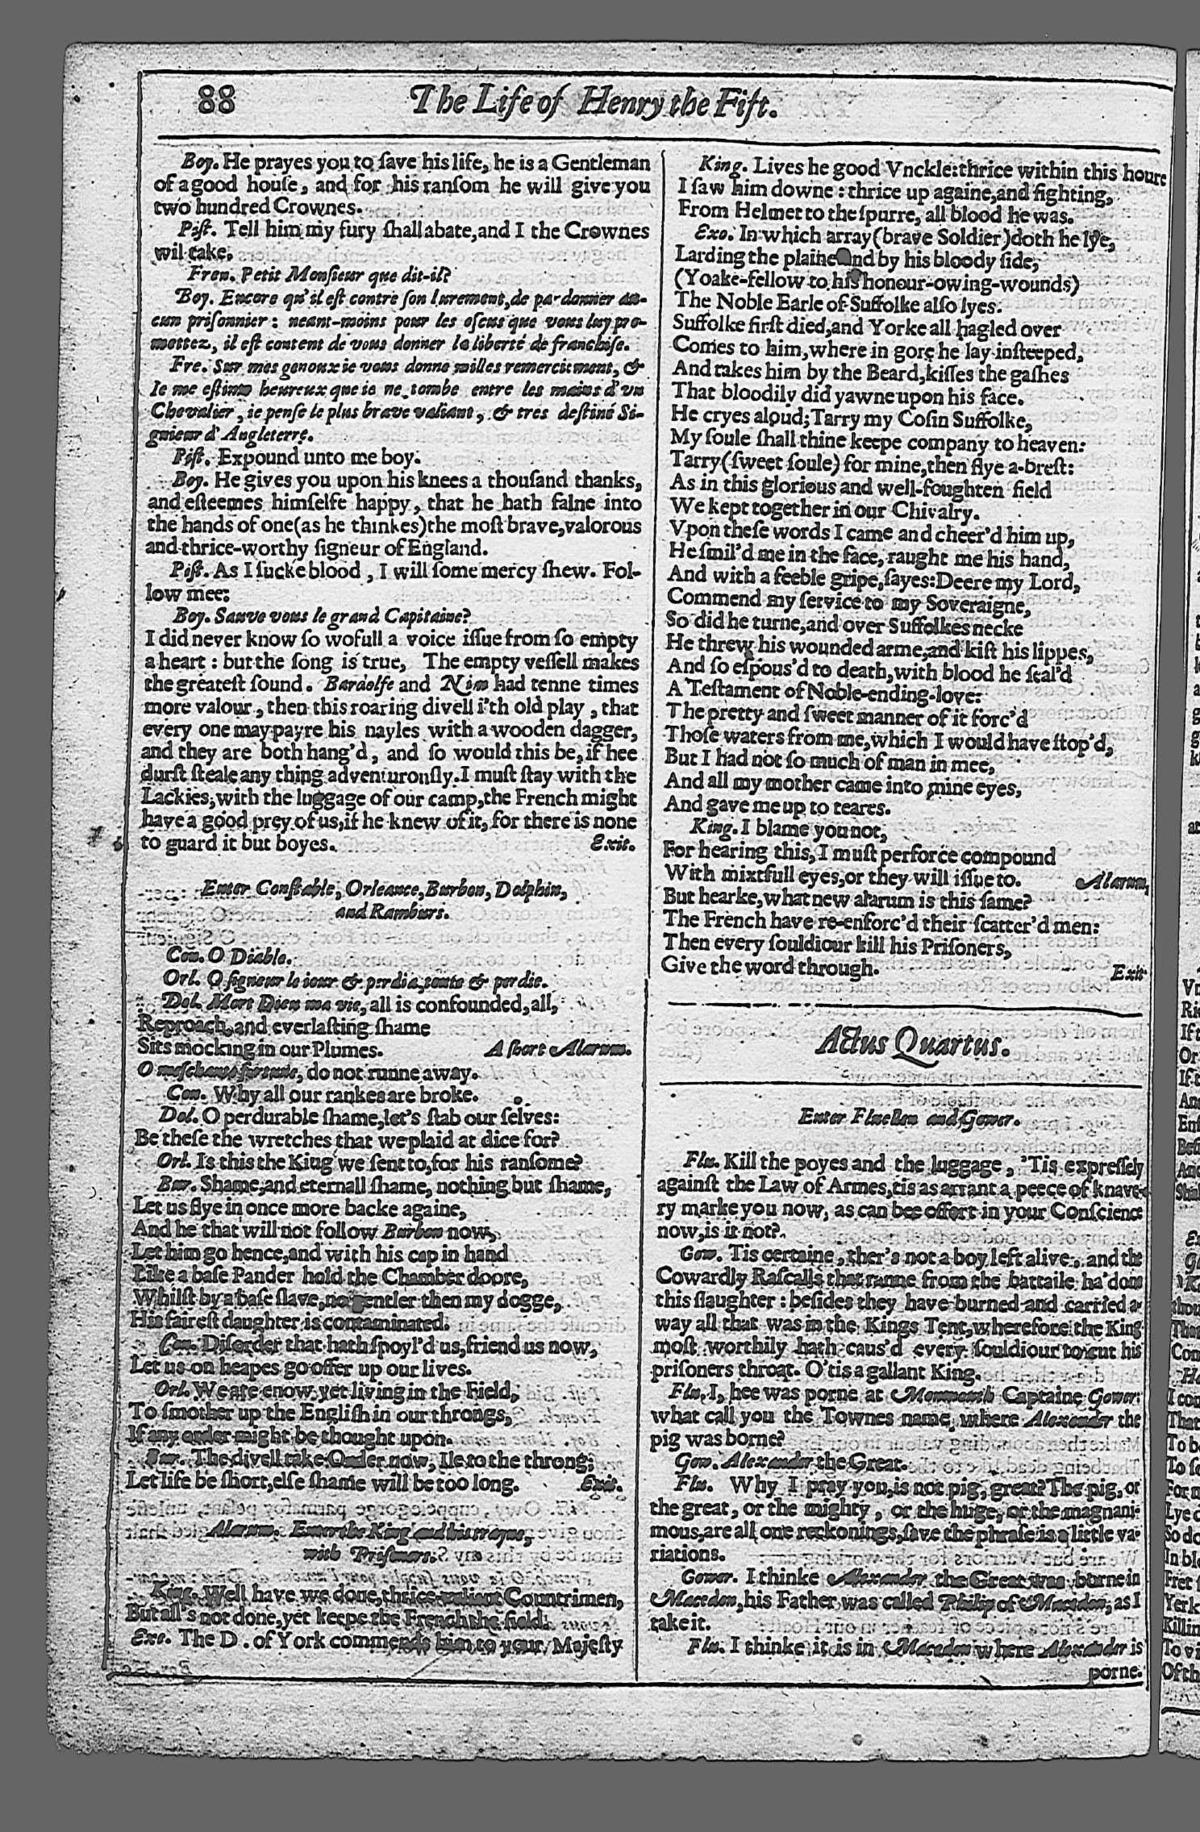 88 The Life of Henry the Fift.
Boy. He prayes you to ſave his life, he is a Gentleman
of a good houſe, and for his ranſom he will give you
two hundred Crownes.
Piſt. Tell him my fury ſhall abate, and I the Crownes
wil take.
Fren. Petit Monſieur que dit-il?
Boy. Encore qu'il eſt contre ſon Iurement, de pardonner au-
cun priſonnier: neant-moins pour les eſcus que vous luy pro-
mettez, il eſt content de vous donner la liberté de franchiſe.
Fre. Sur mes genoux ie vous donne milles remerciment, &
Ie me eſtime heureux que ie ne tombe entre les mains d'vn
Chevalier, ie penſe le plus brave valiant, & tres deſtiné Si-
gnieur d'Angleterre.
Piſt. Expound unto me boy.
Boy. He gives you upon his knees a thouſand thanks,
and eſteemes himſelfe happy, that he hath falne into
the hands of one (as he thinkes) the moſt brave, valorous
and thrice-worthy ſigneur of England.
Piſt. As I ſucke blood, I will ſome mercy ſhew. Fol-
low mee:
Boy. Sauve vous le grand Capitaine?
I did never know ſo wofull a voice iſſue from ſo empty
a heart: but the ſong is true, The empty veſſell makes
the greateſt ſound. Bardolfe and Nim had tenne times
more valour, then this roaring divell i'th old play, that
every one may payre his nayles with a wooden dagger,
and they are both hang'd, and ſo would this be, if hee
durſt ſteale any thing adventurouſly. I muſt ſtay with the
Lackies, with the luggage of our camp, the French might
have a good prey of us, if he knew of it, for there is none
to guard it but boyes. Exit.
Enter Conſtable, Orleance, Burbon, Dolphin,
and Ramburs.
Con. O Diable.
Orl. O ſigneur le iour & perdia, toute & perdie.
Dol. Mort Dieu ma vie, all is confounded, all,
Reproach, and everlaſting ſhame
Sits mocking in our Plumes. A ſhort Alarum.
O meſchante fortune, do not runne away.
Con. Why all our rankes are broke.
Dol. O perdurable ſhame, let's ſtab our ſelves:
Be theſe the wretches that we plaid at dice for?
Orl. Is this the King we ſent to, for his ranſome?
Bur. Shame, and eternall ſhame, nothing but ſhame,
Let us flye in once more backe againe,
And he that will not follow Burbon now,
Let him go hence, and with his cap in hand
Like a baſe Pander hold the Chamber doore,
Whilſt by a baſe ſlave, no gentler then my dogge,
His faireſt daughter is contaminated.
Con. Diſorder that hath ſpoyl'd us, friend us now,
Let us on heapes go offer up our lives.
Orl. We are enow yet living in the Field,
To ſmother up the Engliſh in our throngs,
If any order might be thought upon.
Bur. The divell take Order now, Ile to the throng;
Let life be ſhort, elſe ſhame will be too long. Exit.
Alarum. Enter the King and his trayne,
with Priſoners.
King. Well have we done, thrice-valiant Countrimen,
But all's not done, yet keepe the French the field.
Exe. The D. of York commends him to your Majeſty
King. Lives he good Vnckle: thrice within this houre
I ſaw him downe: thrice up againe, and fighting,
From Helmet to the ſpurre, all blood he was.
Exo. In which array (brave Soldier) doth he lye,
Larding the plaine and by his bloody ſide,
(Yoake-fellow to his honour-owing-wounds)
The Noble Earle of Suffolke alſo lyes.
Suffolke firſt died, and Yorke all hagled over
Comes to him, where in gore he lay inſteeped,
And takes him by the Beard, kiſſes the gaſhes
That bloodily did yawne upon his face.
He cryes aloud; Tarry my Coſin Suffolke,
My ſoule ſhall thine keepe company to heaven:
Tarry (ſweet ſoule) for mine, then flye a-breſt:
As in this glorious and well-foughten field
We kept together in our Chivalry.
Vpon theſe words I came and cheer'd him up,
He ſmil'd me in the face, raught me his hand,
And with a feeble gripe, ſayes: Deere my Lord,
Commend my ſervice to my Soveraigne,
So did he turne, and over Suffolkes necke
He threw his wounded arme, and kiſt his lippes,
And ſo eſpous'd to death, with blood he ſeal'd
A Teſtament of Noble-ending-love:
The pretty and ſweet manner of it forc'd
Thoſe waters from me, which I would have ſtop'd,
But I had not ſo much of man in mee,
And all my mother came into mine eyes,
And gave me up to teares.
King. I blame you not,
For hearing this, I muſt perforce compound
With mixtfull eyes, or they will iſſue to. Alarum,
But hearke, what new alarum is this ſame?
The French have re-enforc'd their ſcatter'd men:
Then every ſouldiour kill his Priſoners,
Give the word through. Exit
Actus Quartus.
Enter Fluellen and Gower.
Flu. Kill the poyes and the luggage, 'Tis expreſſely
againſt the Law of Armes, tis as arrant a peece of knave-
ry marke you now, as can bee offert in your Conſcience
now, is it not?
Gow. Tis certaine, ther's not a boy left alive, and the
Cowardly Raſcalls that ranne from the battaile ha' done
this ſlaughter: beſides they have burned and carried a-
way all that was in the Kings Tent, wherefore the King
moſt worthily hath caus'd every ſouldiour to cut his
priſoners throat. O'tis a gallant King.
Flu. I, hee was porne at Monmouth Captaine Gower:
what call you the Townes name where Alexander the
pig was borne?
Gow. Alexander the Great.
Flu. Why I pray you, is not pig, great? The pig, or
the great, or the mighty, or the huge, or the magnani-
mous, are all one reckonings, ſave the phraſe is a little va-
riations.
Gower. I thinke Alexander the Great was borne in
Macedon, his Father was called Philip of Macedon, as I
take it.
Flu. I thinke it is in Macedon where Alexander is
porne.